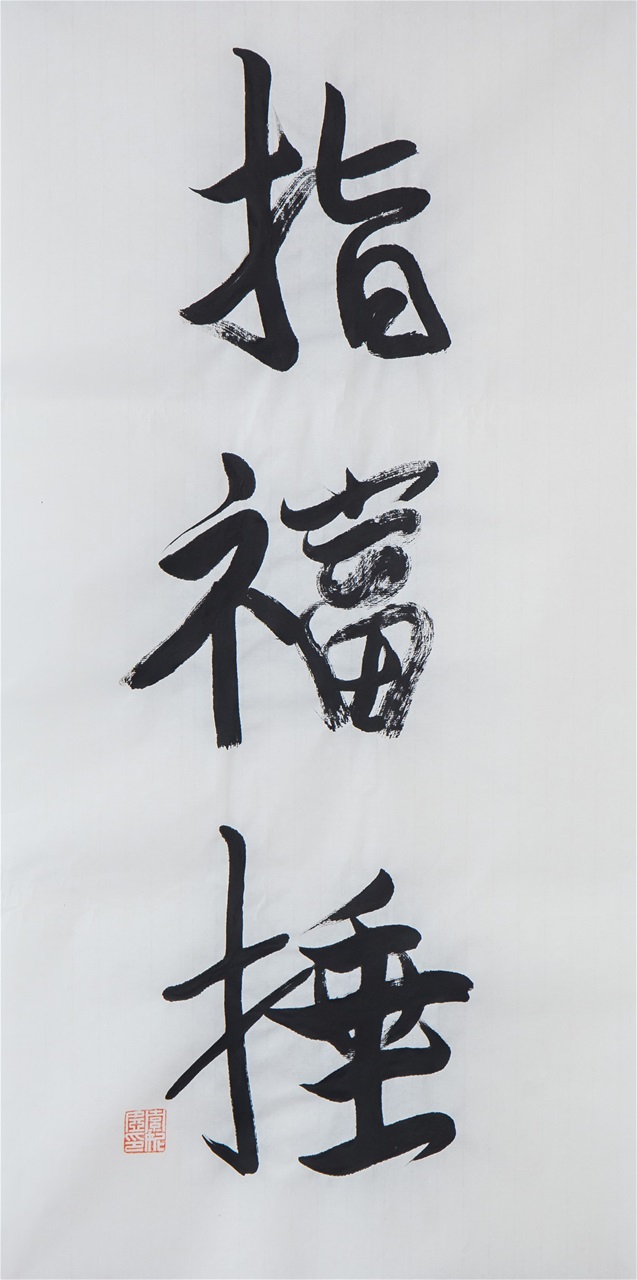 指福捶